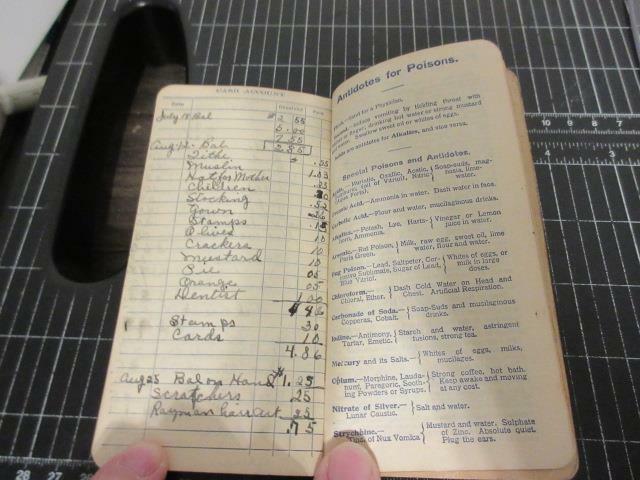 CASH ACCOUNT
Date Received Paid
July 18 Bal $ 2 55
5.00
7 55
Aug 12. Bal. 2.85
Tithe
Muslin 1.03
Hat for Mother
Children
Stocking .52
Gown
Stamps
Olives 10
Crackers 10
Mustard 10
Pie 05
Orange 05
Dentist 1 00
Stamps 30
Cards 10
4.86
Aug 25 Bal on Hand $ 1.25
Scratchers 25
Rayman 25
.75
Antidotes for Poisons.
First.—Send for a Physician.
Second.—Induce vomiting by tickling throat with
feather or finger; drinking hot water or strong mustard
and water. Swallow sweet oil or whites of eggs.
Acids are antidotes for Alkalies, and vice versa.
Special Poisons and Antidotes.
Acids, Muriatic, Oxalic, Acetic, Sulphuric, (Oil of Vitriol), Nitric (Aqua Fortis). Soap-suds, magnesia, lime-water.
Prussic Acid.—Ammonia in water. Dash water in face.
Carbolic Acid.—Flour and water, mucilaginous drinks.
Alkalies.—Potash, Lye, Hartshorn, Ammonia. Vinegar or Lemon juice in water.
Arsenic.—Rat Poison, Paris Green. Milk, raw egg, sweet oil, lime water, flour and water.
Bug Poison.—Lead, Saltpeter, Corrosive Sublimate, Sugar of Lead, Blue Vitriol. Whites of eggs, or milk in large doses.
Chloroform.—Chloral, Ether. Dash Cold Water on Head and Chest. Artificial Respiration.
Carbonate of Soda.—Copperas, Cobalt. Soap-Suds and mucilaginous drinks.
Iodine.—Antimony, Tartar, Emetic. Starch and water, astringent infusions, strong tea.
Mercury and its Salts.— Whites of eggs, milks, mucilages.
Opium.—Morphine, Laudanum, Paregoric, Soothing Powders or Syrups. Strong coffee, hot bath. Keep awake and moving at any cost.
Nitrate of Silver.—Lunar Caustic. Salt and water.
Strychnine.—Tinc. of Nux Vomica Mustard and water, Sulphate of Zinc. Absolute quiet. Plug the ears.
10 9 8 7 6
27 26 25 24 23